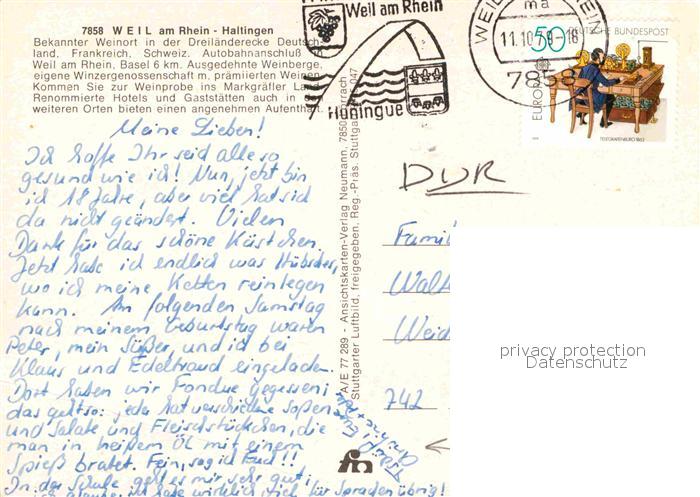 7858 WEIL am Rhein - Haltingen
Bekannter Weinort in der Dreiländerecke Deutsch-
land, Frankreich, Schweiz. Autobahnanschluß in
Weil am Rhein, Basel 6 km. Ausgedehnte Weinberge,
eigene Winzergenossenschaft m. prämiierten Weinen.
Kommen Sie zur Weinprobe ins Markgräfler Land.
Renommierte Hotels und Gaststätten auch in den
weiteren Orten bieten einen angenehmen Aufenthalt.
Weil am Rhein
Hüningue
WEIL RHEIN
ma
11.10 -16
7858
50
DEUTSCHE BUNDESPOST
EUROPA
TELEGRAFENBÜRO 1863
Meine Lieben!
Ich hoffe Ihr seid alle so
gesund wie ich! Nun, jetzt bin
ich 18 Jahre, aber viel hat sich
da nicht geändert. Vielen
Dank für das schöne Kästchen.
Jetzt habe ich endlich was Hübsches,
wo ich meine Ketten reinlegen
kann. Am folgenden Samstag
nach meinem Geburtstag waren
Peter, mein Süßer, und ich bei
Klaus und Edeltraud eingeladen.
Dort haben wir Fondue gegessen:
das geht so: jeda hat verschiedne Soßen
und Salate und Fleischstückchen, die
man in heißem Öl mit einem
Spieß bratet. Fein, sag ich Euch!!
In der Schule geht es mir sehr gut;
ich habe wirklich für Sprachen übrig!
Tschüß Eure
A/E 77 289 - Ansichtskarten-Verlag Neumann, 7850 Lörrach
Stuttgarter Luftbild, freigegeben. Reg.-Präs. Stuttgart 047
DUR
Famil
Walt
Weid
742
privacy protection
Datenschutz